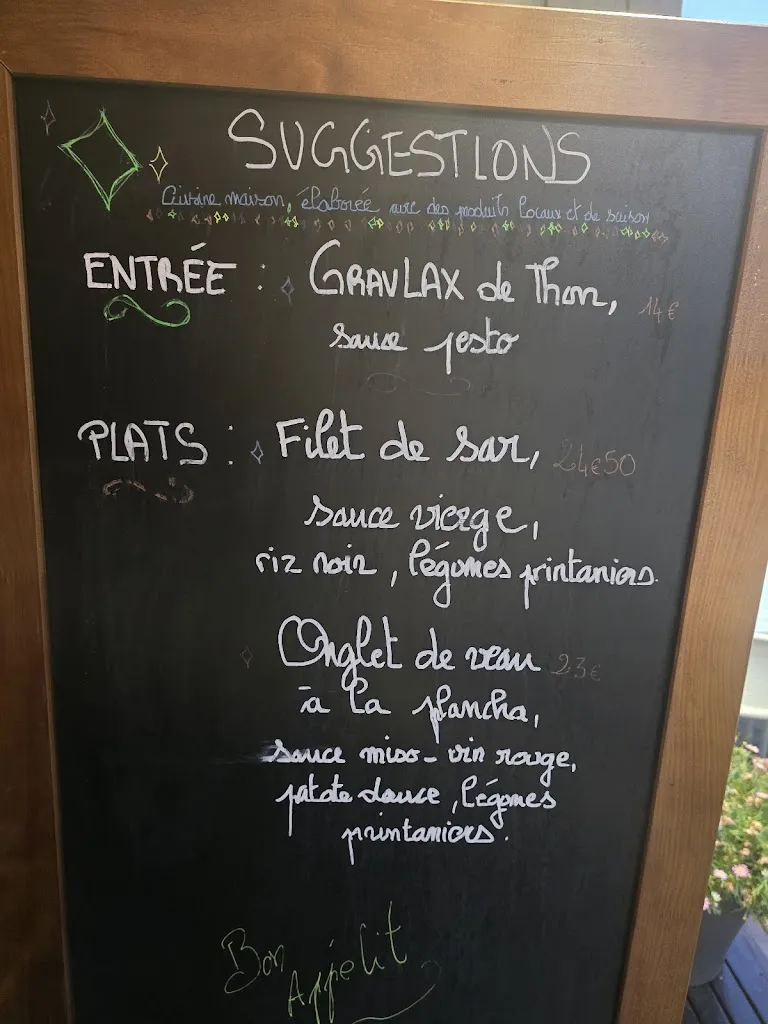 SUGGESTIONS
Cuisine maison, élaborée avec des produits locaux et de saison
ENTRÉE : GRAVLAX de Thon, 14€
sauce pesto
PLATS : Filet de sar, 24€50
sauce vierge,
riz noir, légumes printaniers.
Onglet de veau 23€
à la plancha,
sauce miso-vin rouge,
patate douce, légumes
printaniers.
Bon
Appétit